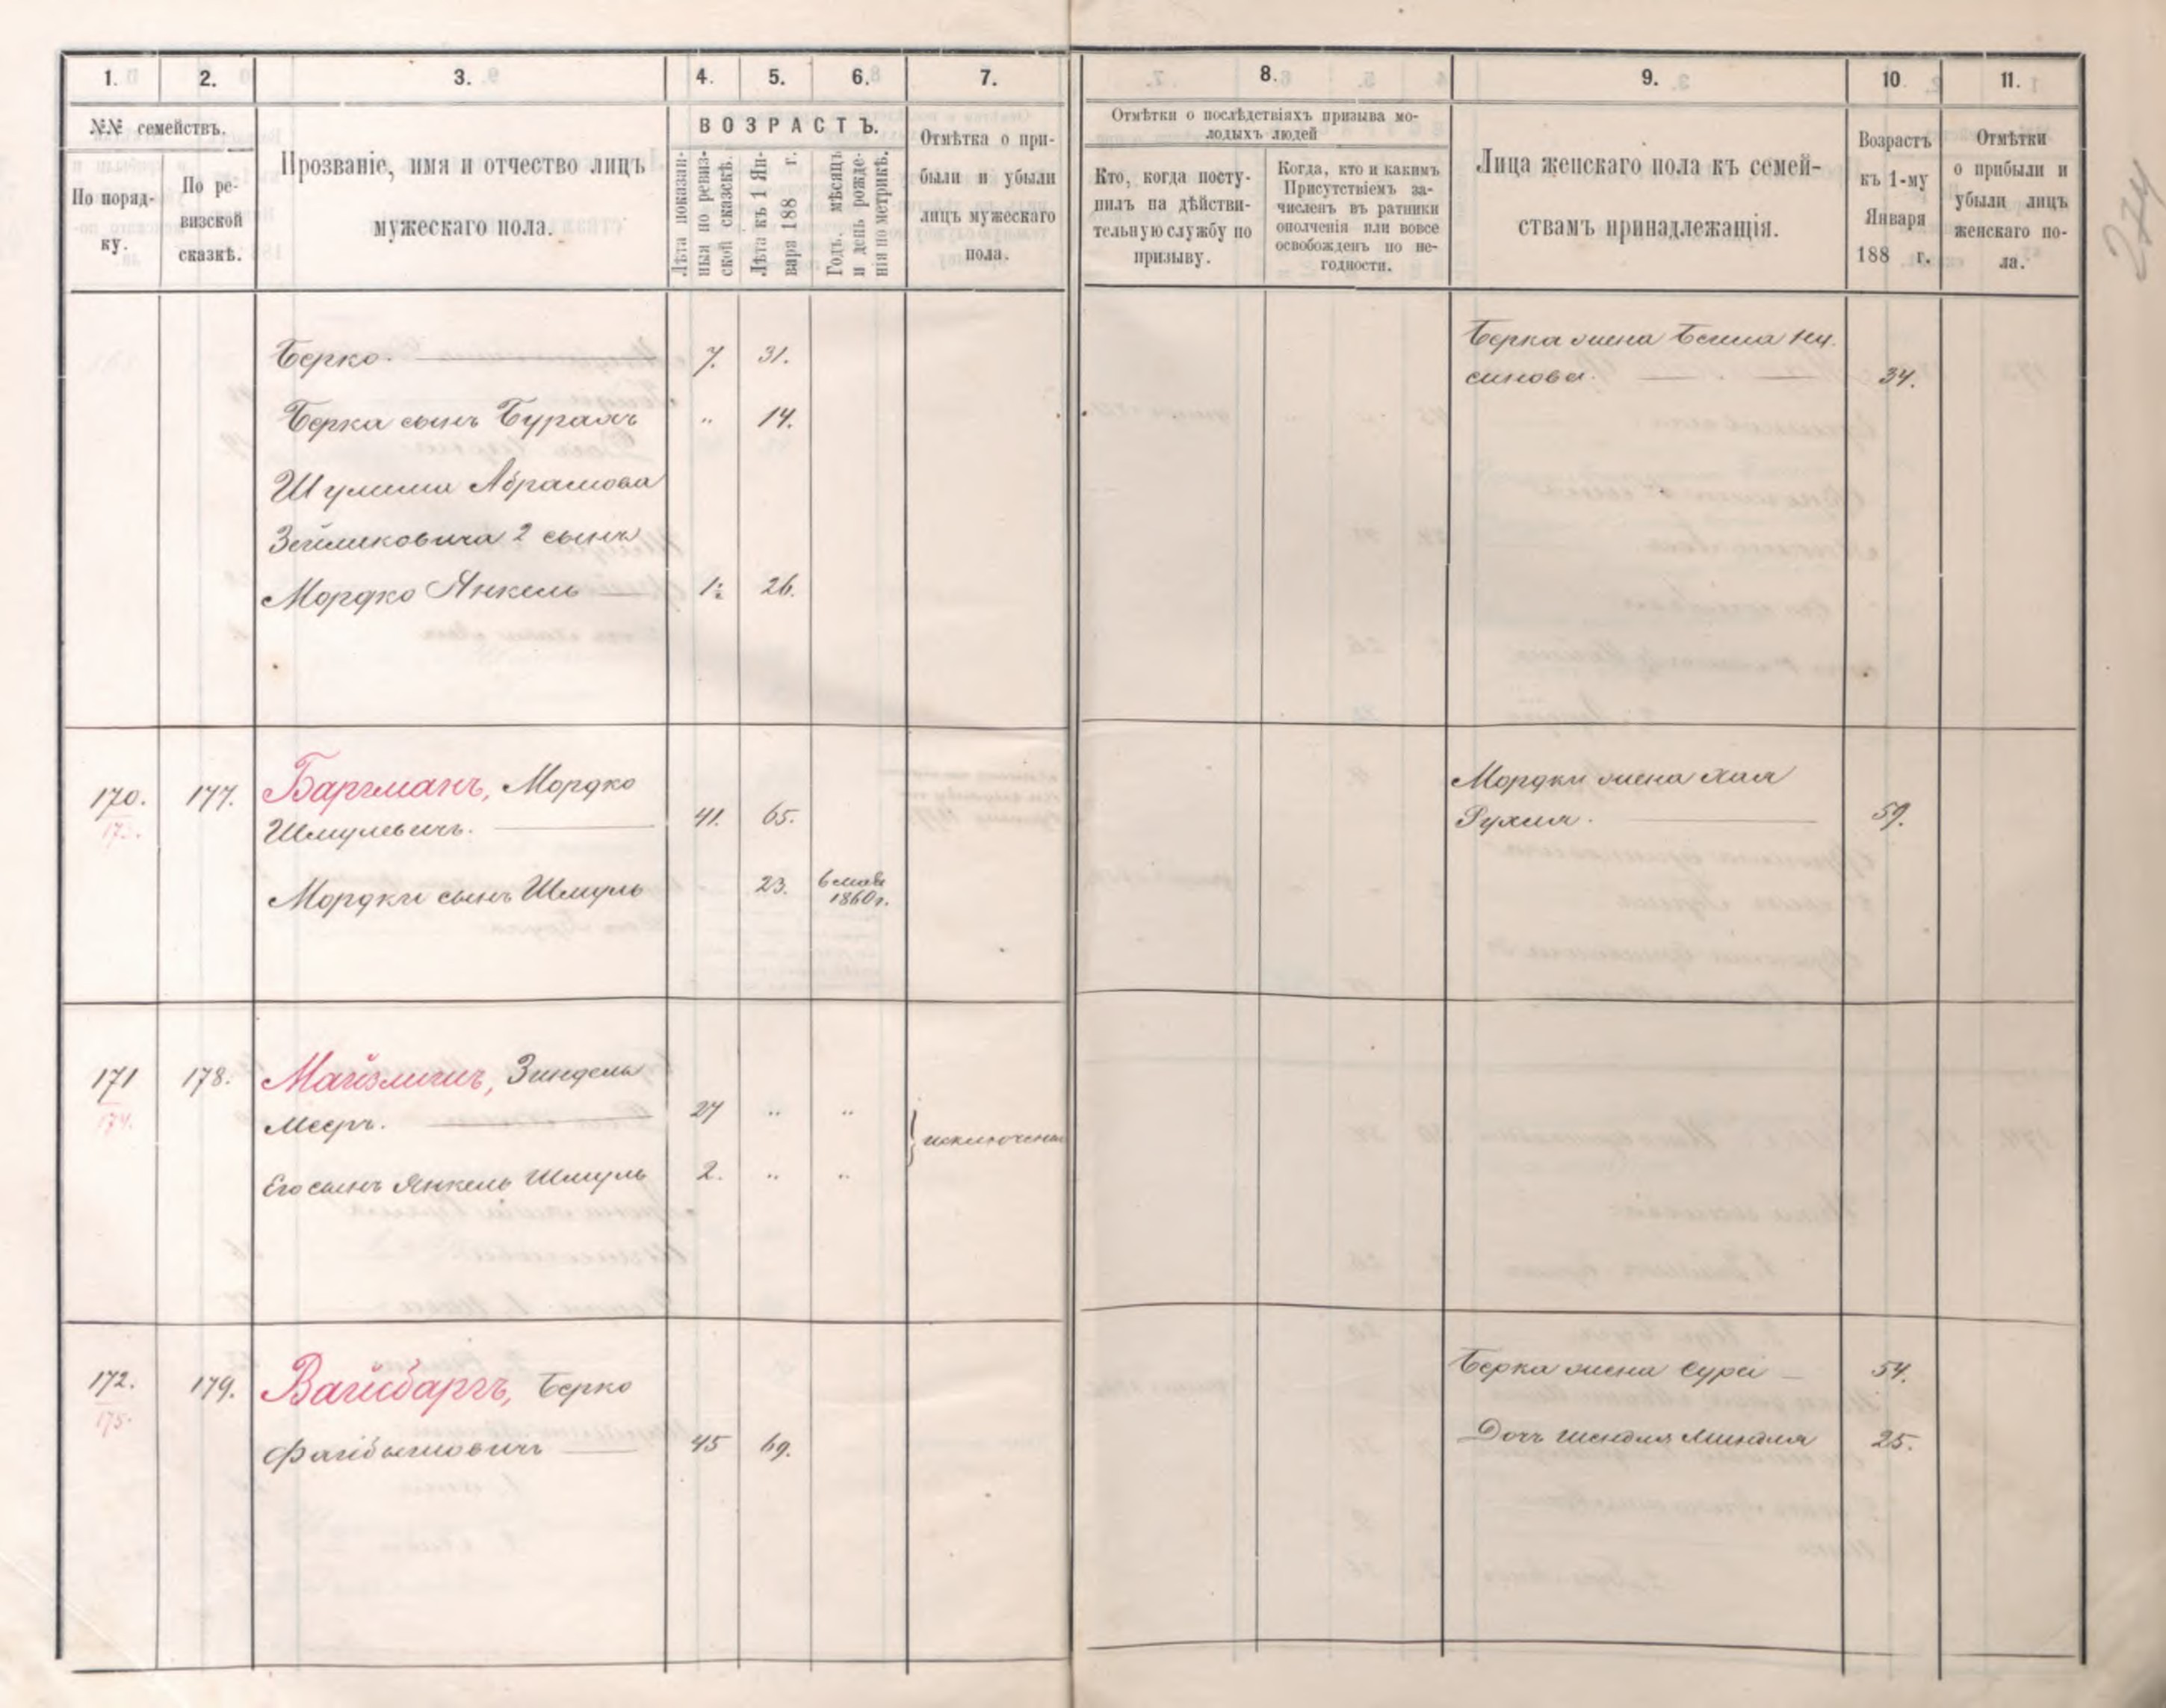 1. 2. 3. 4. 5. 6. 7. 8. 9. 10. 11.
№№ семействъ.
По поряд-
ку.
По ре-
визской
сказкѣ.
Прозваніе, имя и отчество лицъ
мужескаго пола.
ВОЗРАСТЪ.
Лѣта показан-
ныя по ревиз-
ской сказскѣ.
Лѣта къ 1 Ян-
варя 188 г.
Годъ, мѣсяцъ
и день рожде-
нія по метрикѣ.
Отмѣтка о при-
были и убыли
лицъ мужескаго
пола.
Отмѣтки о послѣдствіяхъ призыва мо-
лодыхъ людей
Кто, когда посту-
пилъ на дѣйстви-
тельную службу по
призыву.
Когда, кто и какимъ
Присутствіемъ за-
численъ въ ратники
ополченія или вовсе
освобожденъ по не-
годности.
Лица женскаго пола къ семей-
ствамъ принадлежащія.
Возрастъ
къ 1-му
Января
188 г.
Отмѣтки
о прибыли и
убыли лицъ
женскаго по-
ла.
274
Берко. 7. 31.
Берка жена
синова. 34.
Берка сынъ 14.
Абрамова
Зеймиковича 2 сынъ
Мордко Янкель 26.
170. 177. Баргманъ, Мордко
173.
Шмулевичъ. 41. 65.
Мордки жена Хая
Рухля. 59.
Мордки сынъ Шмуль 23.
1860 г.
171 178. Майзлишъ, Зиндель
174.
Мееръ. 27 " "
исключены
Его сынъ Янкель Шмуль 2. " "
172. 179. Вайсбаргъ, Берко
175.
Файбышовичъ 45 69.
Берка жена Сура 54.
Дочь Шендля Миндля 25.